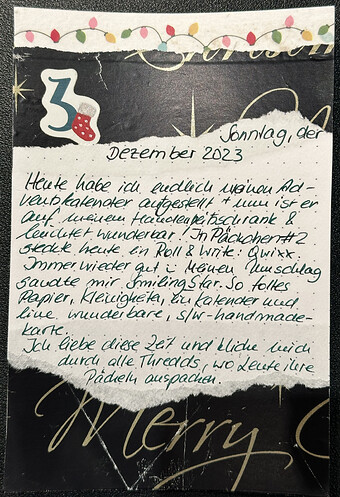 Christm
3
Sonntag, der
Dezember 2023
Heute habe ich endlich meinen Ad-
ventskalender aufgestellt + nun ist er
auf meinem Handarbeitsschrank &
leuchtet wunderbar! In Päckchen #2
steckte heute ein Roll & Write: Qwixx.
Immer wieder gut :) Meinen Umschlag
sandte mir SmilingStar. So tolles
Papier, Kleinigkeiten, ein Kalender und
eine wunderbare, s/w-handmade-
karte.
Ich liebe diese Zeit und klicke mich
durch alle Threads, wo Leute ihre
Päckeln auspacken.
Merry C